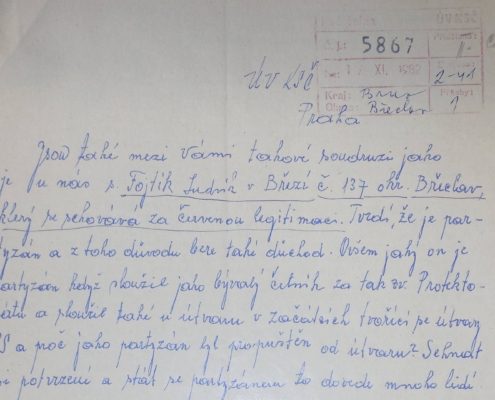 ÚV KSČ
Č.j.: 5867
XI. 1982
2-41
Kraj: Brno
Přílohy:
Okres: Břeclav
1
ÚV KSČ
Praha
Jsou také mezi Vámi takové soudruzi jako
je u nás s. Fojtík Ludvík v Březí č. 137 okr. Břeclav,
který se schovává za červenou legitimaci. Tvrdí, že je par-
tyzán a z toho důvodu bere také důchod. Ovšem jaký on je
partyzán když sloužil jako bývalý četník za tak zv. Protekto-
rátu a sloužil také u útvaru v začátcích tvořící se útvary
a proč jako partyzán byl propuštěn od útvaru? Sehnat
si potvrzení a stát se partyzánem to dovede mnoho lidí